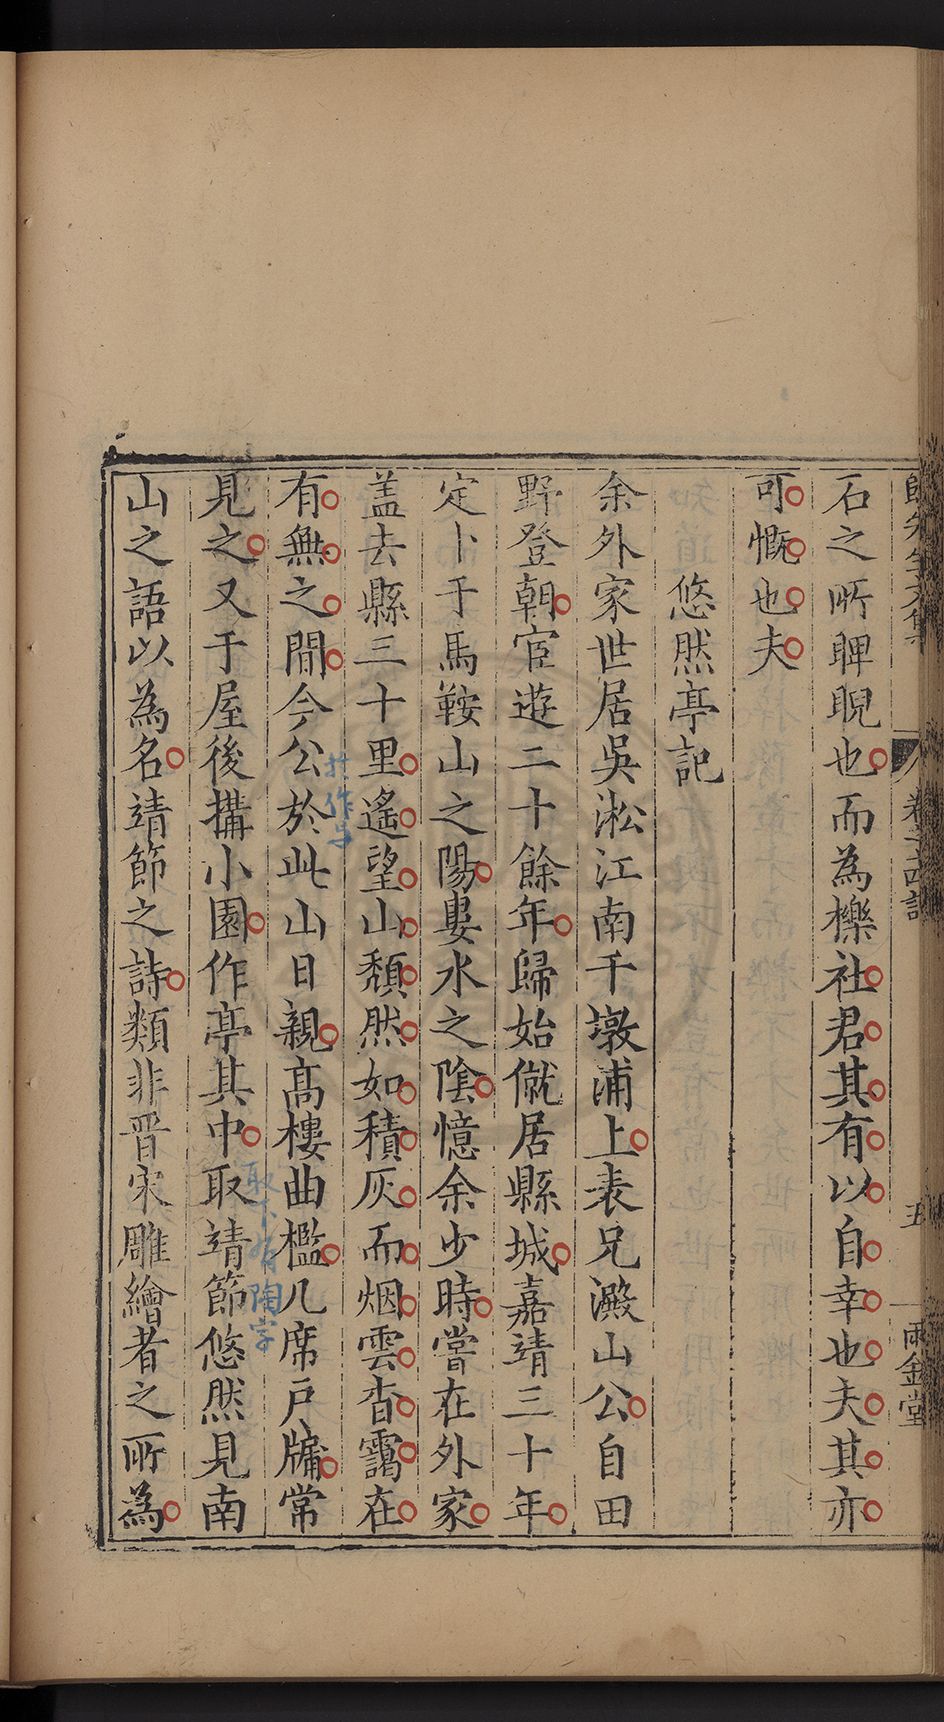 石之所睥睨也而為櫟社君其有以自幸也夫其亦
可慨也夫
悠然亭記
余外家世居吳淞江南千墩浦上表兄澱山公自田
野登朝宦遊二十餘年歸始僦居縣城嘉靖三十年
定卜于馬鞍山之陽婁水之陰憶余少時嘗在外家
盖去縣三十里遙望山頹然如積灰而烟雲杳靄在
有無之間今公於此山日親高樓曲檻几席戶牖常
於作与
見之又于屋後搆小園作亭其中取靖節悠然見南
取下有陶字
山之語以為名靖節之詩類非晋宋雕繪者之所為
卷
五
雨金堂